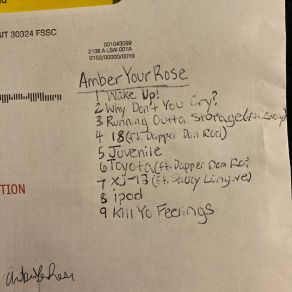 GIT 30324 FSSC
001043099
2138 A LSAI 001A
0152/00000/0019
Amber Your Rose
1 Wake Up!
2 Why Don't You Cry?
3 Running Outta Storage (ft.
4 18 (ft. Dapper Dan Roc)
5 Juvenile
6 Toyota (ft. Dapper Dan Roc
7 XJ-13 (ft. Saucy
8 ipod
9 Kill Yo Feelings
TION